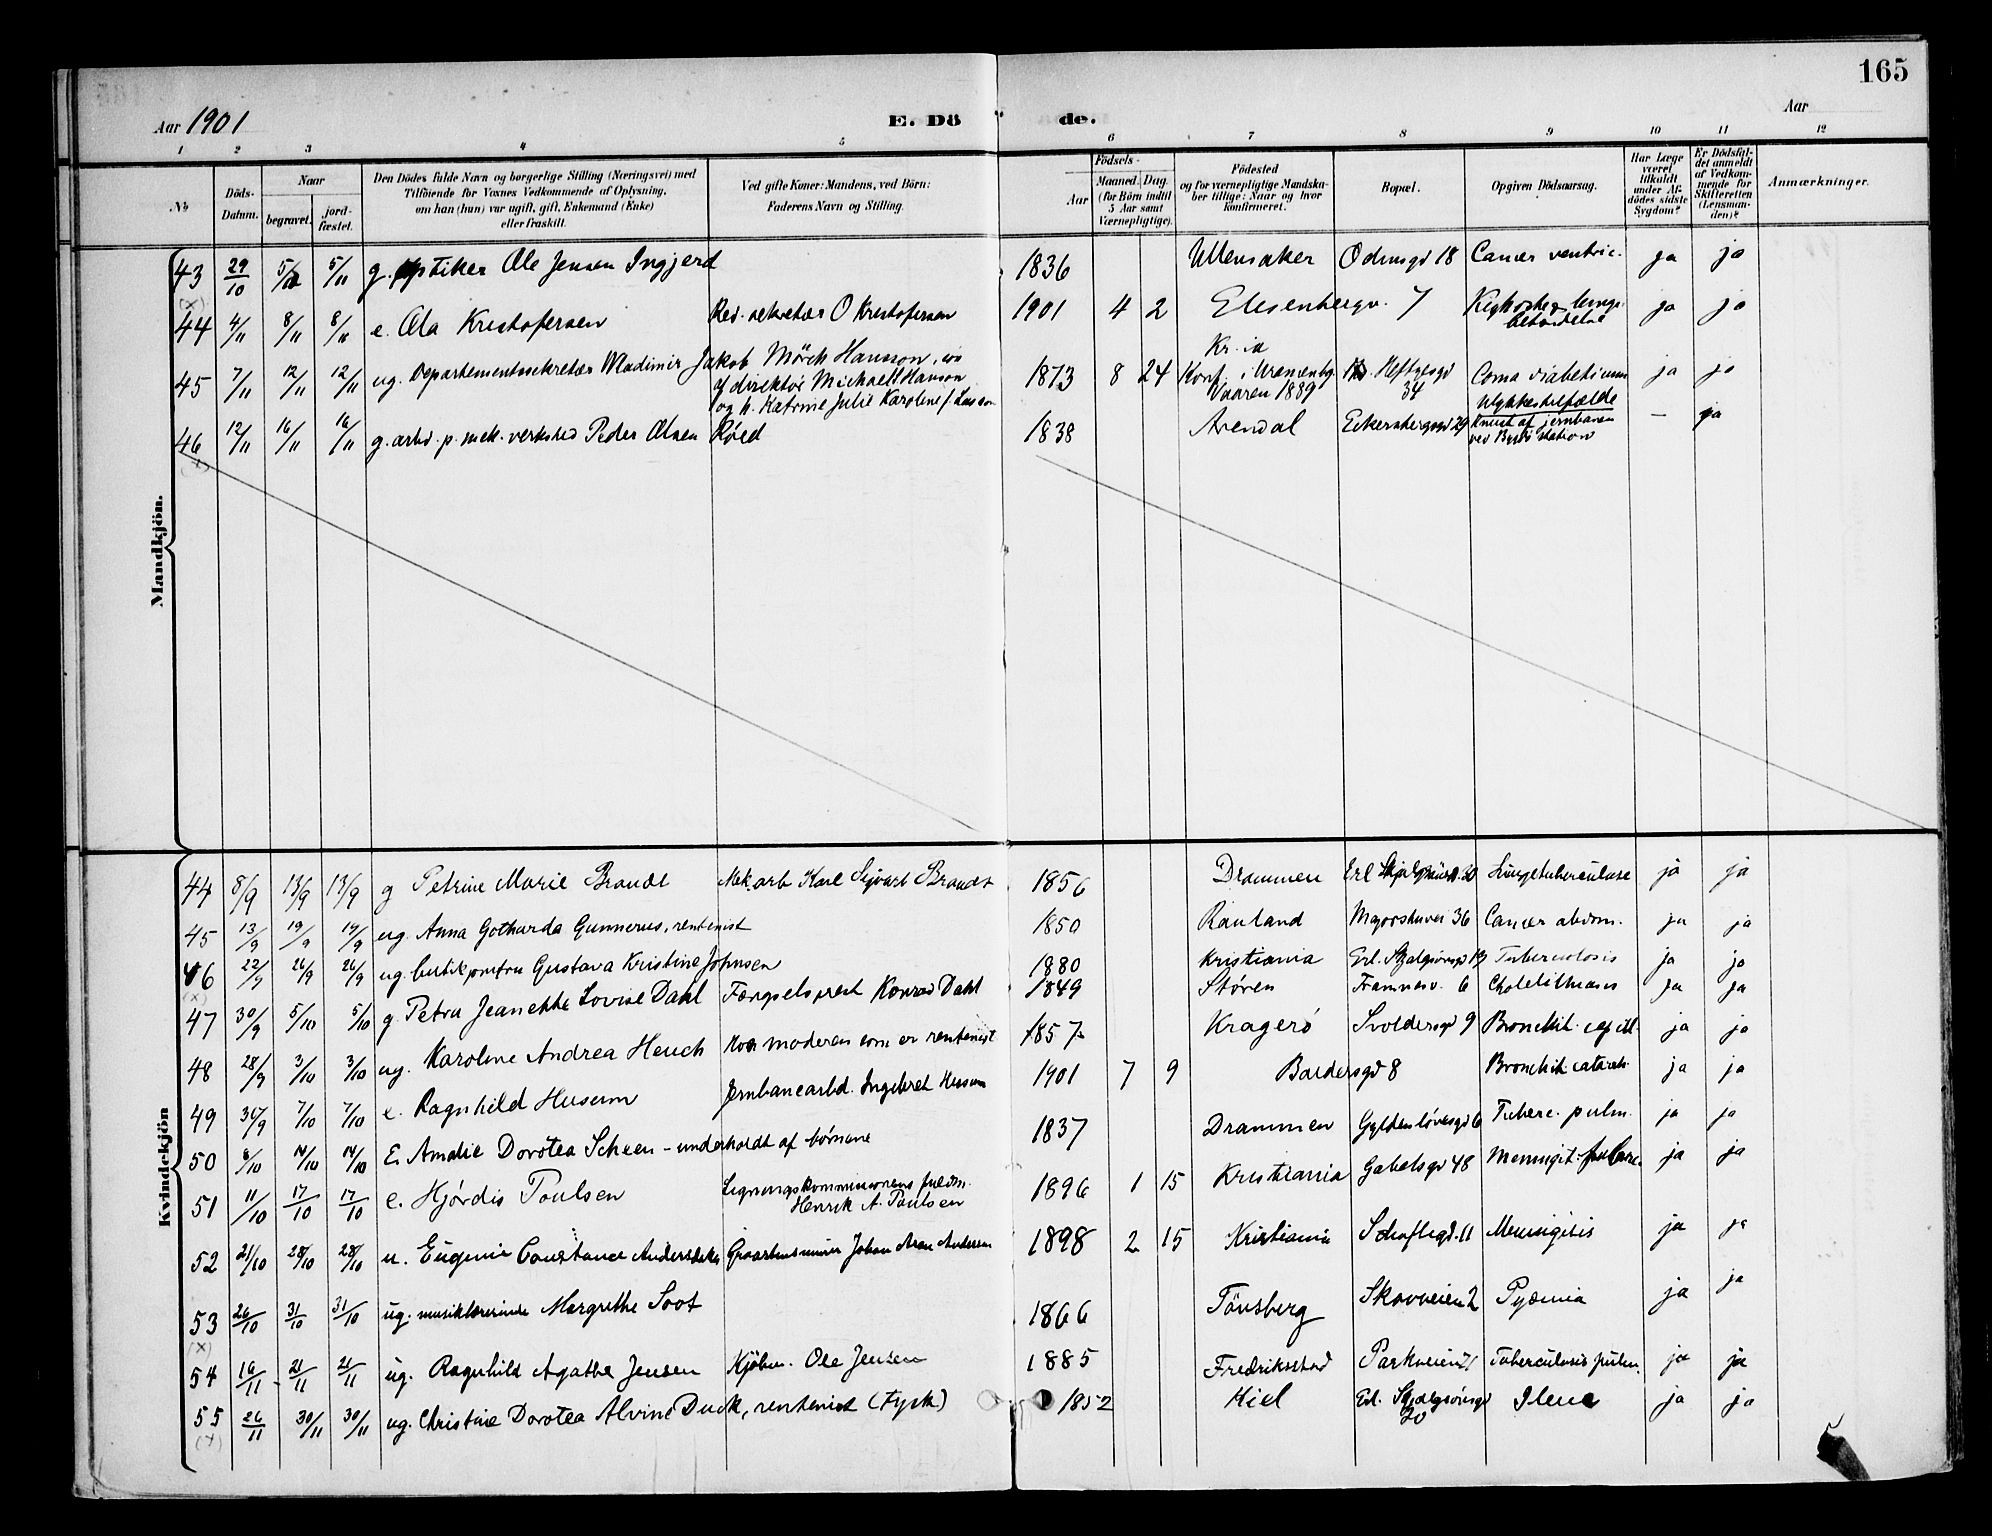 165
Aar 1901 E. Dö de. Aar
1 2 3 4 5 6 7 8 9 10 11 12
No
Döds-Datum.
Naar
begravet.
jord-fæstet.
Den Dödes fulde Navn og borgerlige Stilling (Næringsvei) med
Tilföiende for Voxnes Vedkommende af Oplysning,
om han (hun) var ugift, gift, Enkemand (Enke)
eller fraskilt.
Ved gifte Koner: Mandens, ved Börn:
Faderens Navn og Stilling.
Födsels-
Aar
Maaned. Dag.
(for Börn indtil
5 Aar samt
Værnepligtige).
Födested
og for værnepligtige Mandska-
ber tillige: Naar og hvor
konfirmeret.
Bopæl.
Opgiven Dödsaarsag.
Har Læge
været
tilkaldt
under Af-
dödes sidste
Sygdom?
Er Dödsfal-
det anmeldt
af Vedkom-
mende for
Skifteretten
(Lensman-
den)?
Anmærkninger.
Mandkjön.
43 29/10 5/11 g. optiker Ole Jensen Ingjerd 1836 Ullensaker Odinsgd 18 Cancer ventric. ja ja
(x)
44 4/11 8/11 8/11 e. Ola Kristofersen Red. sekretær O Kristofersen 1901 4 2 Elisenbergv. 7 Kighoste & lunge-
betændelse ja ja
45 7/11 12/11 12/11 ug. Departementssekretær Wladimir Jakob Mörch Hansson,
af direktör Michael Hanson
og h. Katrine Julie Karoline f. Lasson
1873 8 24 Kr.ia
Konf. i Uranienbg.
Vaaren 1889 Heftyesgd
34 Coma diabeticum ja ja
46 12/11 16/11 16/11 g. arbd. p. mek. verksted Peder Olsen Röed 1838 Arendal Eckersbergsgd 29 Ulykkestilfælde
Knust af jernbanen
ved station – ja
(x)
Kvindekjön
44 8/9 13/9 13/9 g Petrine Marie Brandt Mek. arb Karl Sigvart Brandt 1856 Drammen Erl. 20 Lungetuberculose ja ja
45 13/9 19/9 19/9 ug. Anna Gothurda Gunnerus, rentenist 1850 Rauland Majorstuvei 36 Cancer abdom. ja ja
46 22/9 26/9 26/9 ug. butikjomfru Gustava Kristine Johnsen 1880 Kristiania Erl. Skjalgsönsgd 19 Tuberculosis ja ja
(x)
47 30/9 5/10 5/10 g. Petra Jeanette Lovise Dahl Fængselsprest Konrad Dahl 1849 Stören Framnesv. 6 Cholelithiasis ja ja
48 28/9 3/10 3/10 ug. Karoline Andrea Heuch Hos moderen som er rentenist 1857 Kragerö Svoldersgd 9 Bronchit. capill. ja ja
49 30/9 7/10 7/10 e. Ragnhild Husum Jernbanearbd. Ingebret Husum 1901 7 9 Baldersgd 8 Bronchit. catarrh. ja ja
50 8/10 14/10 14/10 E. Amalie Dorotea Scheen – underholdt af börnene 1837 Drammen Gyldenlövesgd 6 Tuberc. pulm. ja ja
51 11/10 17/10 17/10 e. Hjördis Poulsen Ligningskommissionens fuldm.
Henrik A. Paulsen 1896 1 15 Kristiania Gabelsgd 48 Meningit. tuberc. ja ja
52 21/10 28/10 28/10 u. Eugenie Constance Andersdatter Johan Aron Andersen 1898 2 15 Kristiania Schaftesgd. 11 Meningitis ja ja
53 26/10 31/10 31/10 ug. musiklærerinde Margrethe Soot 1866 Tönsberg Skovveien 2 Pyæmia ja ja
(x)
54 16/11 21/11 21/11 ug. Ragnhild Agathe Jensen Kjöbm. Ole Jensen 1885 Fredriksstad Parkveien 71 Tuberculosis pulm. ja ja
55 26/11 30/11 30/11 ug. Christine Dorotea Alvine Duck, rentenist (tysk) 1852 Kiel Erl. Skjalgsönsgd
20 Ileus ja ja
(x)